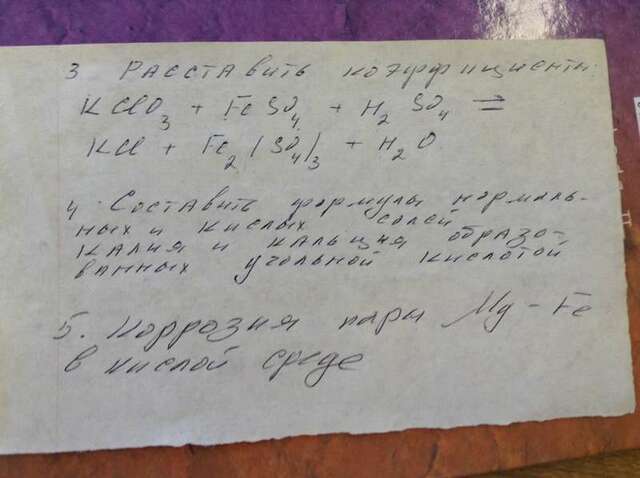 3 Расставить коэффициенты
KClO₃ + FeSO₄ + H₂SO₄ =
KCl + Fe₂(SO₄)₃ + H₂O
4. Составить формулы нормаль-
ных и кислых солей
калия и кальция образо-
ванных угольной кислотой
5. Коррозия пары Mg - Fe
в кислой среде